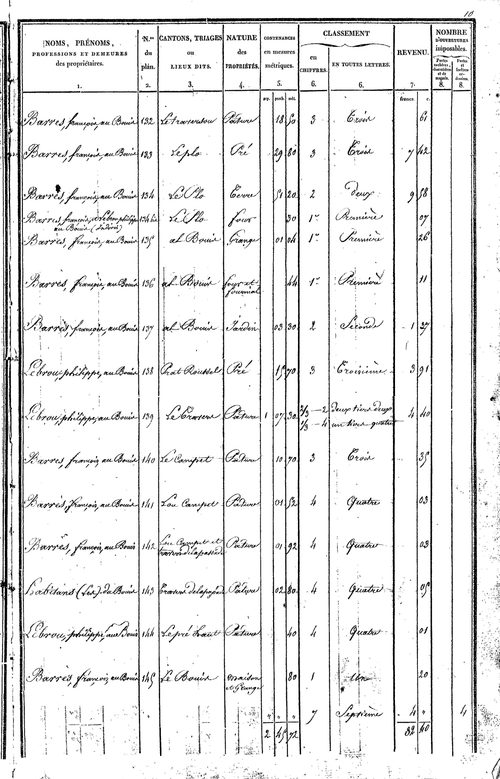 10
NOMS, PRÉNOMS, PROFESSIONS ET DEMEURES des propriétaires. | N.os du plan. | CANTONS, TRIAGES ou LIEUX DITS. | NATURE des PROPRIÉTÉS. | CONTENANCES en mesures métriques. | CLASSEMENT en CHIFFRES. | EN TOUTES LETTRES. | REVENU. | NOMBRE D'OUVERTURES imposables.
1. 2. 3. 4. 5. 6. 6. 7. 8. 8.
arp. perch. mèt. francs. c.
Barrès, françois, au Bouis 132 Pâture 18 50 3 Trois 61
Barrès, françois, au Bouis 133 Le plo Pré 29 80 3 Trois 7 42
Barrès, françois, au Bouis 134 Le Plo Terre 51 20 2 deux 9 58
Barrès, françois, Lebrou philippe 134 bis Le Plo four 30 1re Première 07
au Bouis
Barrès, françois, au Bouis 135 al Bouis Grange 01 04 1re Première 26
Barrès, françois, au Bouis 136 al Bouis 44 1re Première 11
Barrès, françois, au Bouis 137 al Bouis Jardin 03 30 2 Seconde 1 27
Lebrou, philippe, au Bouis 138 Prat Roussel Pré 15 70 3 Troisième 3 91
Lebrou, philippe, au Bouis 139 Le Travers Pâture 1 07 30 2/3 – 2 deux tiers deux 4 40
1/3 – 4 un tiers quatre
Barrès, françois, au Bouis 140 Le Campet Pâture 10 70 3 Trois 35
Barrès, françois, au Bouis 141 Lou Campet Pâture 01 52 4 Quatre 03
Barrès, françois, au Bouis 142 Lou Campet et Pâture 01 92 4 Quatre 03
Habitans (Les) du Bouis 143 Pâture 02 80 4 Quatre 05
Lebrou, philippe, au Bouis 144 Le pré Pâture 40 4 Quatre 01
Barrès, françois, au Bouis 145 Le Bouis maison et Grange 80 1 un 20
" " " 7 Septième 4 " 4
2 45 72 82 40